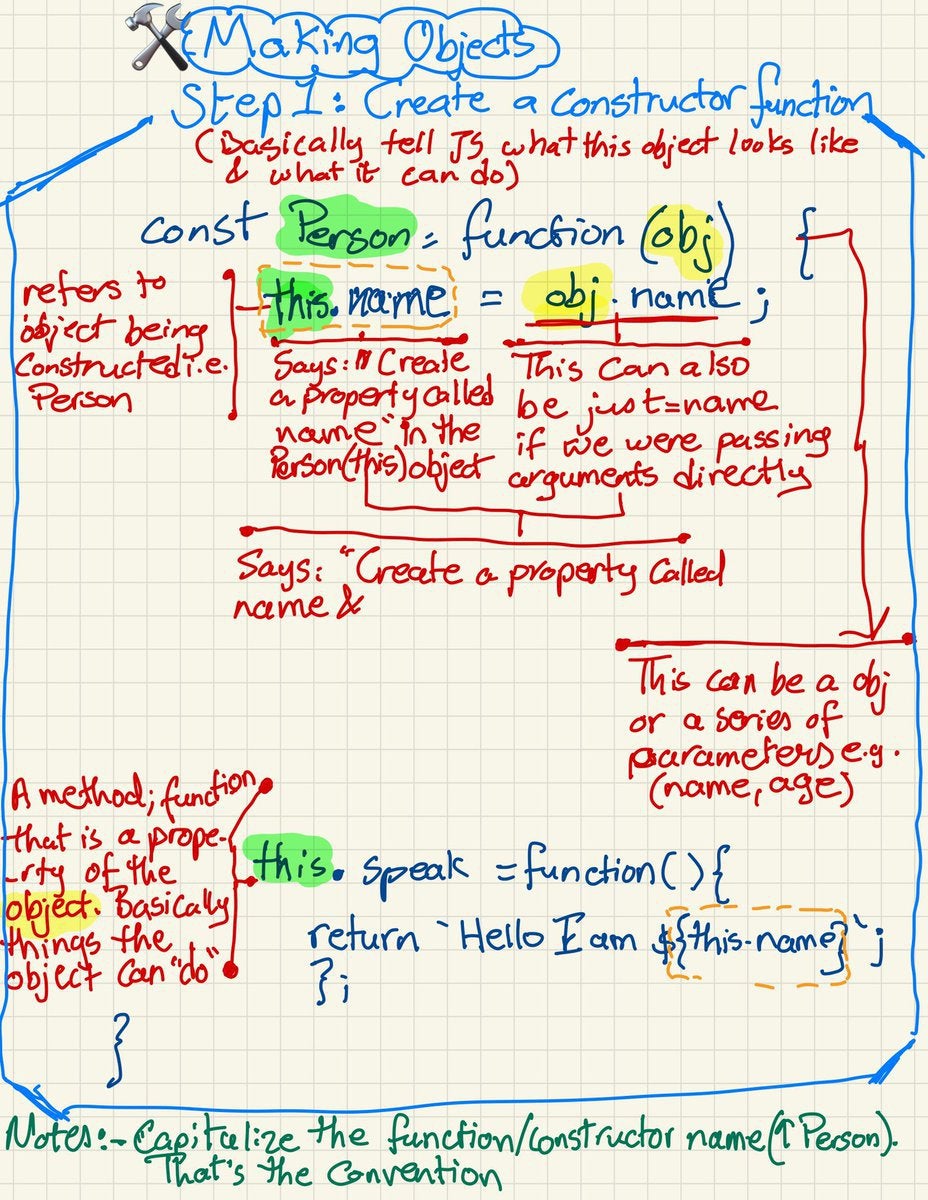 Making Objects
Step 1: Create a constructor function
(Basically tell JS what this object looks like
& what it can do)
const Person = function (obj) {
this.name = obj.name;
refers to
object being
Constructed i.e.
Person
Says: "Create
a property called
name" in the
Person(this) object
This can also
be just=name
if we were passing
arguments directly
Says: "Create a property called
name &
This can be a obj
or a series of
parameters e.g.
(name, age)
A method; function
that is a prope-
-rty of the
object. Basically
things the
object can "do"
this. speak = function(){
return `Hello I am ${this.name}`;
};
}
Notes:- Capitalize the function/constructor name(↑ Person).
That's the convention